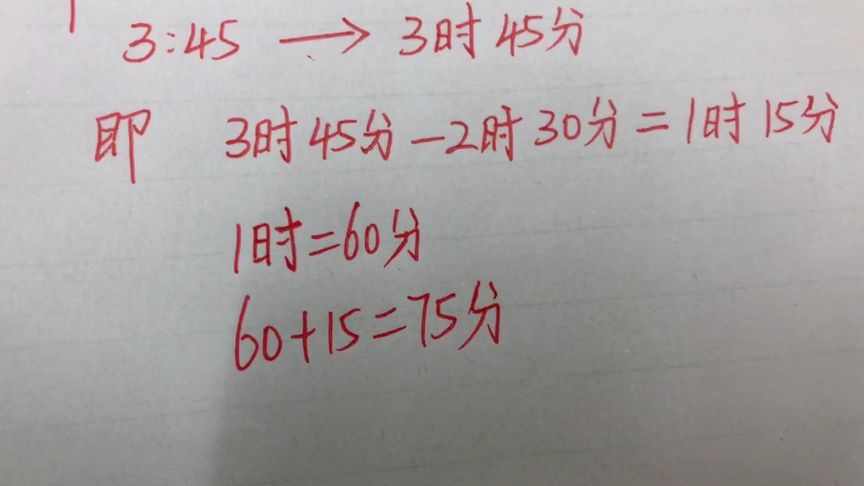 3:45 → 3时45分
即 3时45分-2时30分=1时15分
1时=60分
60+15=75分